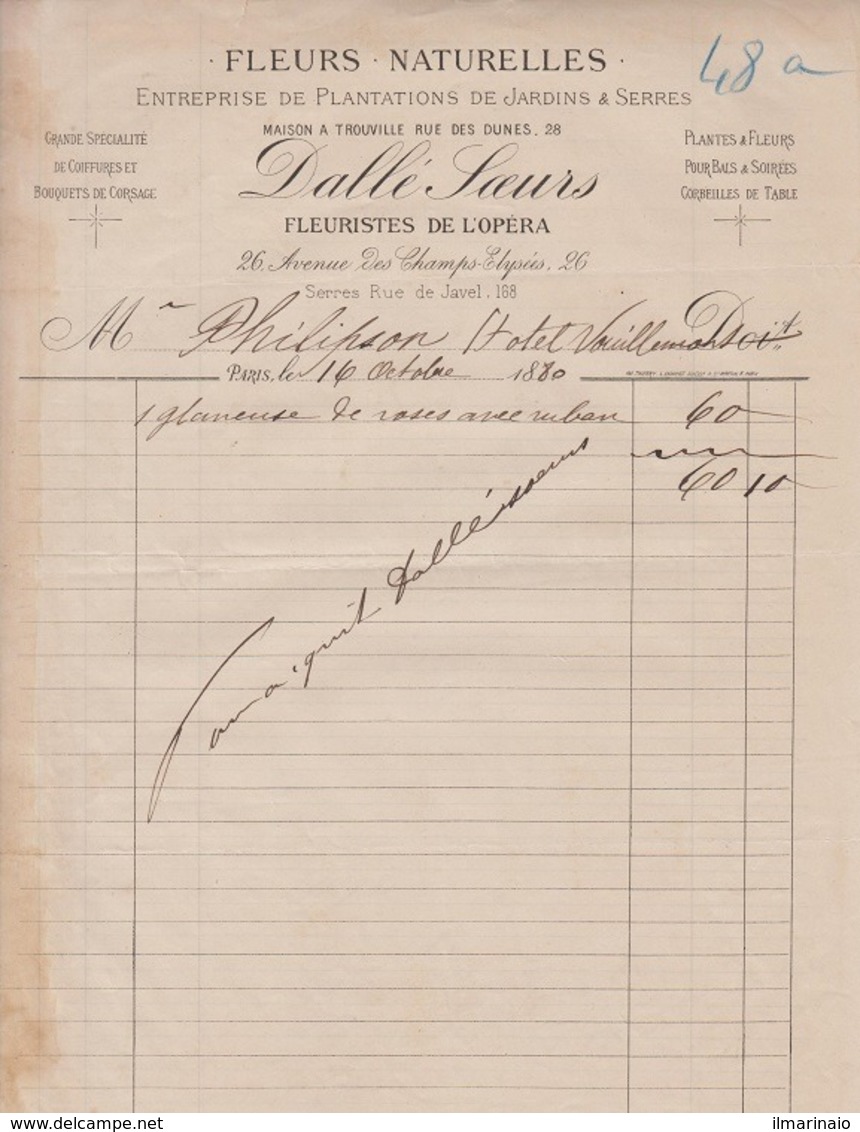 · FLEURS · NATURELLES ·
48 a
ENTREPRISE DE PLANTATIONS DE JARDINS & SERRES
MAISON A TROUVILLE RUE DES DUNES. 28
GRANDE SPÉCIALITÉ
DE COIFFURES ET
BOUQUETS DE CORSAGE
Dallé Sœurs
PLANTES & FLEURS
POUR BALS & SOIRÉES
CORBEILLES DE TABLE
FLEURISTES DE L'OPÉRA
26, Avenue des Champs-Elysées, 26
Serres Rue de Javel, 168
M Philipson Hotel Vouillemont Doit
PARIS, le 16 Octobre 1880
1 glaneuse de roses avec ruban 60
60 10
Pour aquit Dallé sœurs
delcampe.net
ilmarinaio